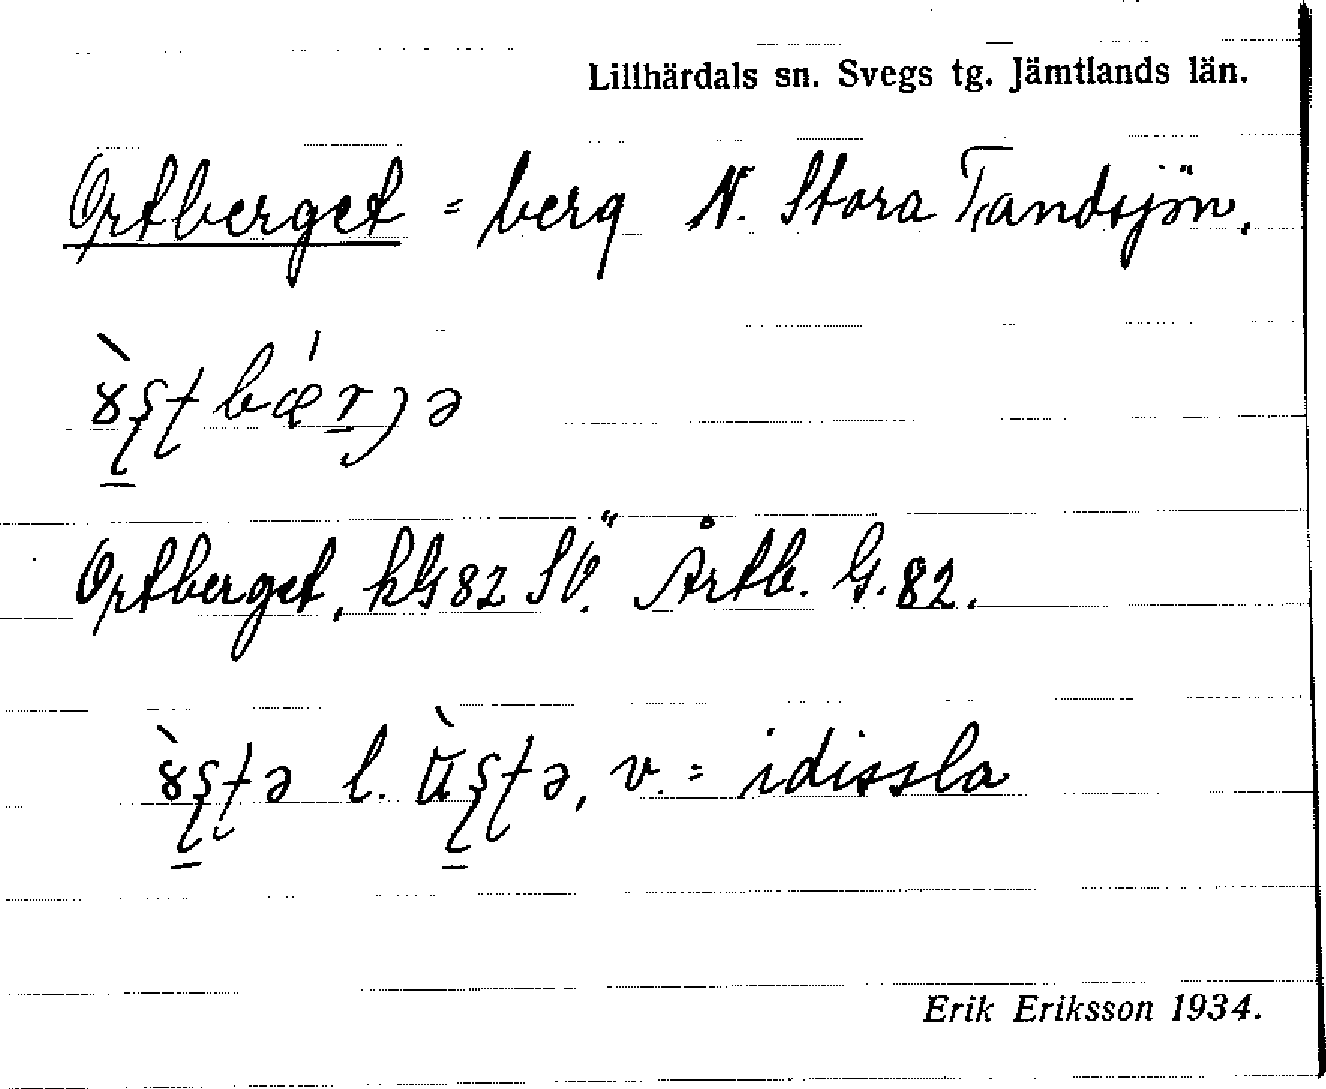 Lillhärdals sn. Svegs tg. Jämtlands län.
Ortberget = berg N. Stora Tandsjön.
Ortberget, kG82 SV. Årtb. G. 82.
l. v. = idissla
Erik Eriksson 1934.